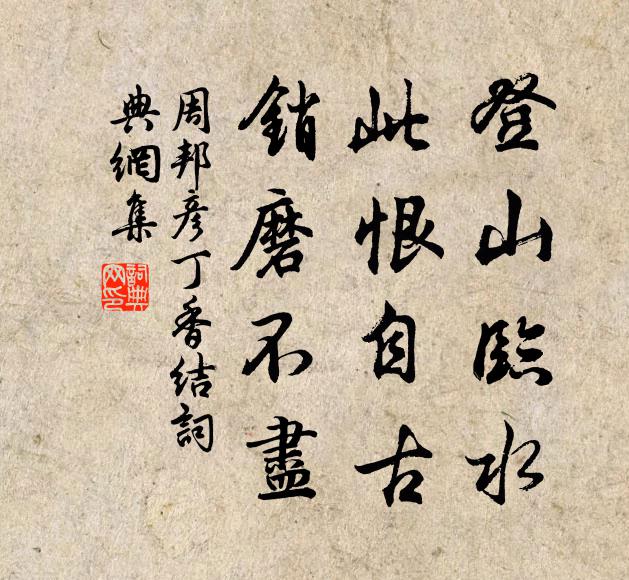 登山臨水
此恨自古
銷磨不盡
周邦彦丁香结詞
典網集
詞典网印